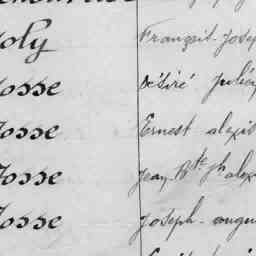 oly Françoit. Jose
osse Désiré julie
osse Ernest alexis
osse Jean. Bte ph alex
osse joseph. augu